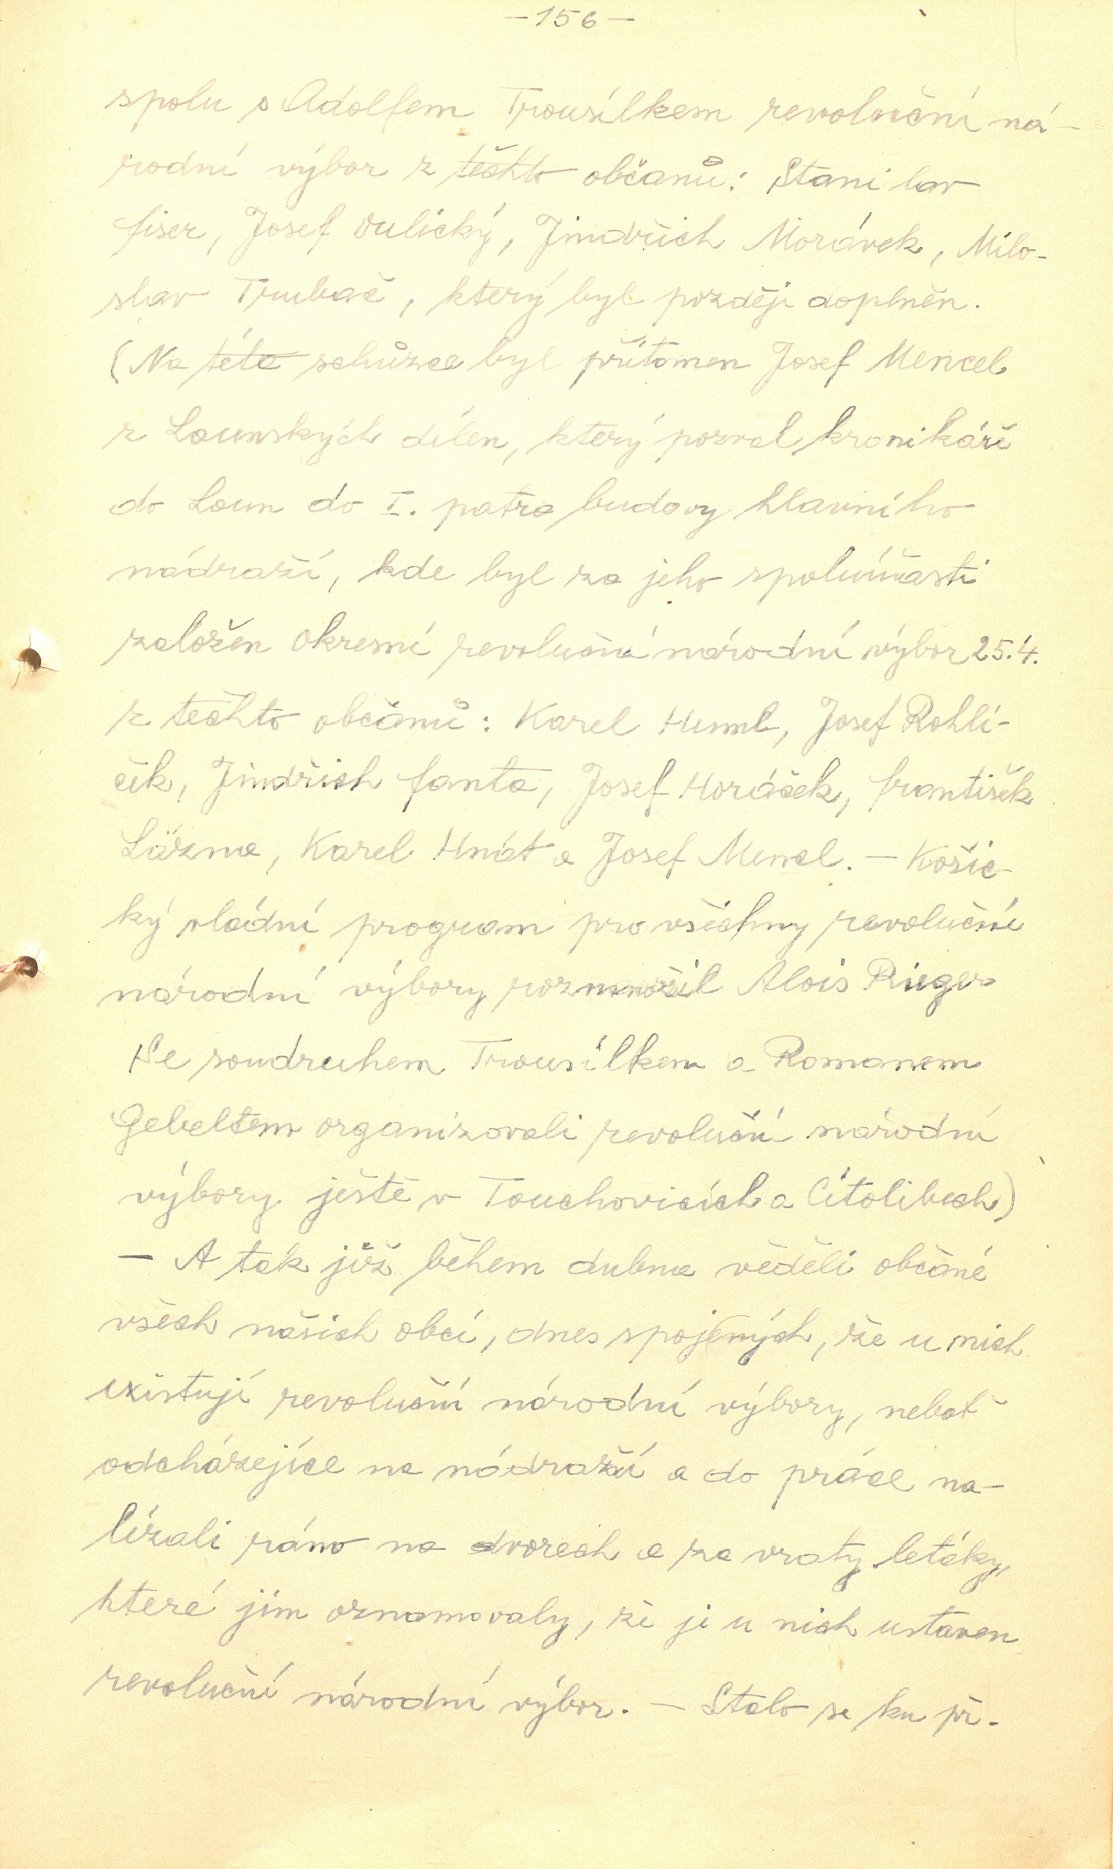 -156-
spolu s Adolfem Trousílkem revoluční ná-
rodní výbor z těchto občanů: Stanislav
fiser, Josef Oulický, Jindřich Morávek, Milo-
slav Trubač, který byl později doplněn.
(Na této schůzce byl přítomen Josef Mencl
z Lounských dílen, který pozval kronikáře
do Loun do I. patra budovy hlavního
nádraží, kde byl za jeho spoluúčasti
založen okresní revoluční národní výbor 25.4.
z těchto občanů: Karel Huml, Josef Rohlí-
ček, Jindřich fanta, Josef Horáček, františek
Lázna, Karel Hnát a Josef Mencl. - Košic-
ký vládní program pro všechny revoluční
národní výbory rozmnožil Alois Rieger
Se soudruhem Trousílkem a Romanem
Gebeltem organizovali revoluční národní
výbory ještě v Touchovicích a Cítolibech)
- A tak již během dubna věděli občané
všech našich obcí, dnes spojených, že u nich
existují revoluční národní výbory, neboť
odcházejíce na nádraží a do práce na-
lézali ráno na dvorech a za vraty letáky,
které jim oznamovaly, že je u nich ustaven
revoluční národní výbor. - Stalo se ku př.